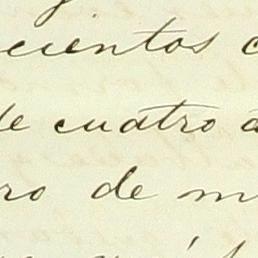 cientos
de cuatro
ro de m